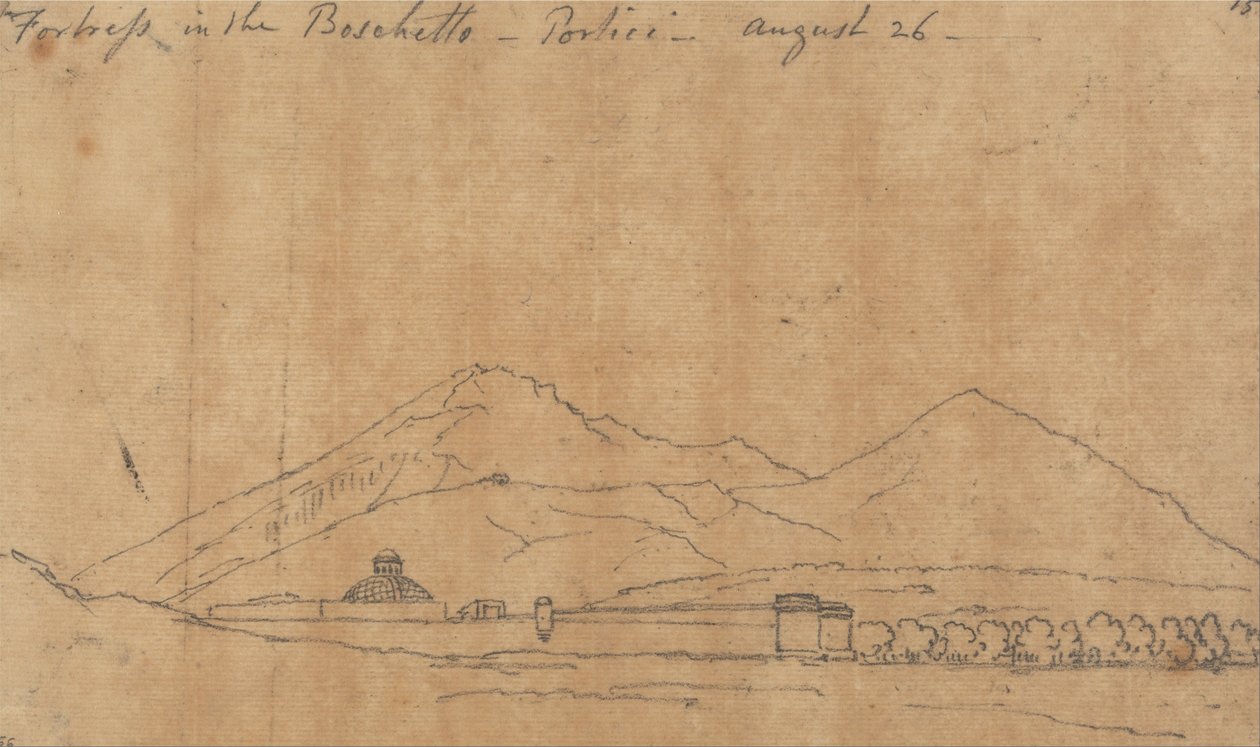 Fortreſs in the Boschetto – Portici – august 26 –